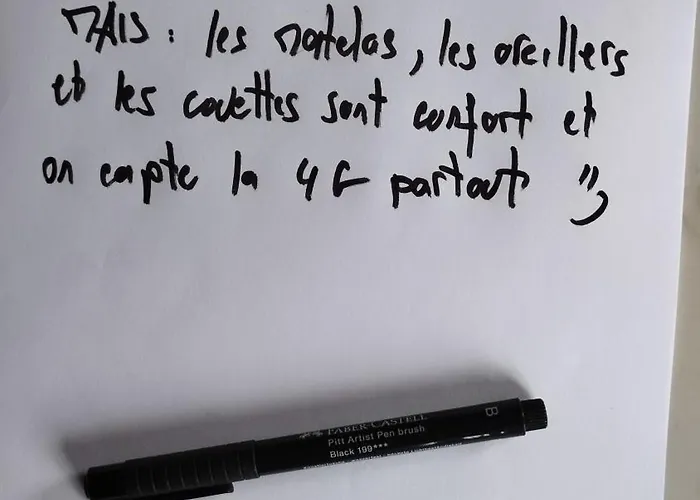 MAIS : les matelas, les oreillers
et les couettes sont confort et
on capte la 4G partout ")
B
FABER-CASTELL
Pitt Artist Pen brush
Black 199***